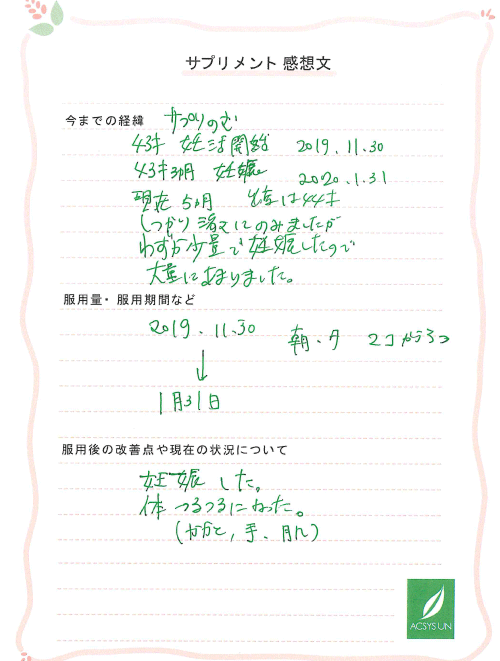 サプリメント 感想文
今までの経緯 サプリのむ
43才 妊活開始 2019.11.30
43才3ヶ月 妊娠 2020.1.31
現在 5ヶ月 出産は44才
しっかり 飲まにのみましたが
わずか少量で妊娠したので
大量にあまりました。
服用量・服用期間など
2019.11.30
朝・夕 2コから3コ
↓
1月31日
服用後の改善点や現在の状況について
妊娠した。
体 つるつるになった。
(かかと,手、
ACSYS UN